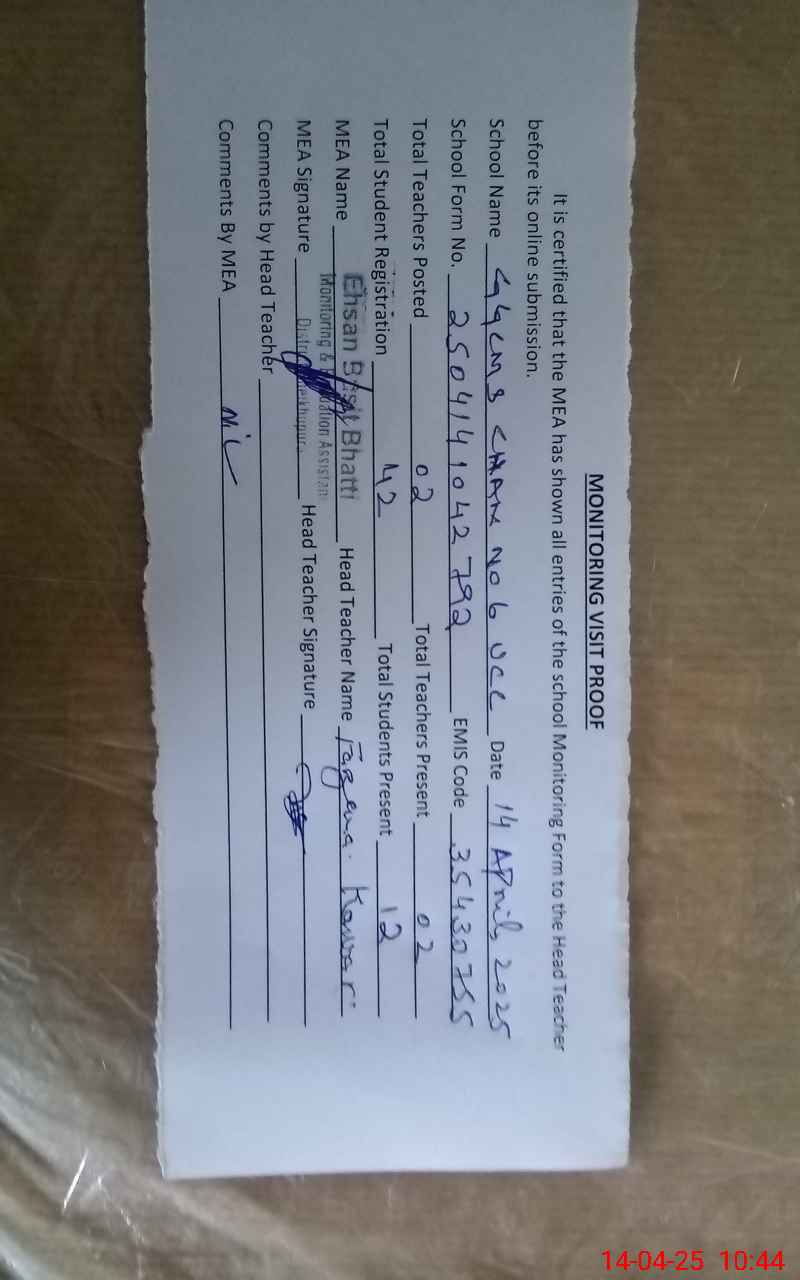 MONITORING VISIT PROOF
It is certified that the MEA has shown all entries of the school Monitoring Form to the Head Teacher
before its online submission.
School Name GGCMS CHAK NO 6 UCC Date 14 APril, 2025
School Form No. 2504141042792 EMIS Code 35430755
Total Teachers Posted 02 Total Teachers Present 02
Total Student Registration 42 Total Students Present 12
MEA Name Ehsan Basit Bhatti Head Teacher Name Kawar
Monitoring & Assistant
MEA Signature Head Teacher Signature
Comments by Head Teacher
Comments By MEA Nil
14-04-25 10:44